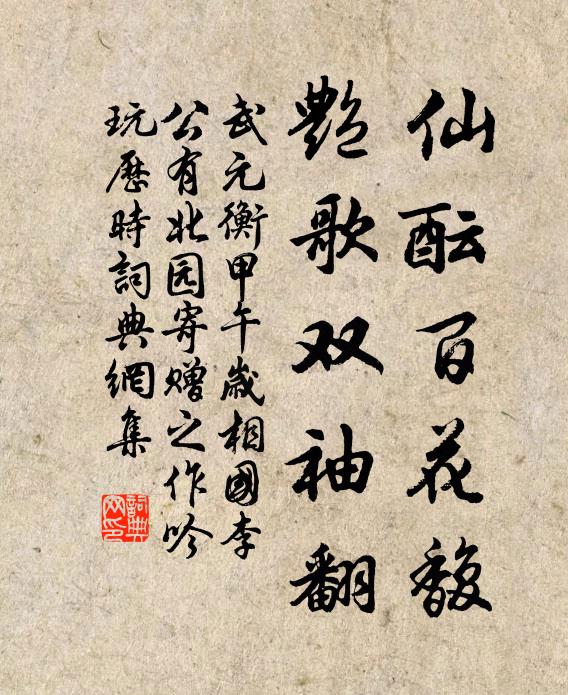 仙酝百花馥
艶歌双袖翻
武元衡甲午歲相國李
公有北园寄赠之作吟
玩歷時詞典網集
詞典
网印